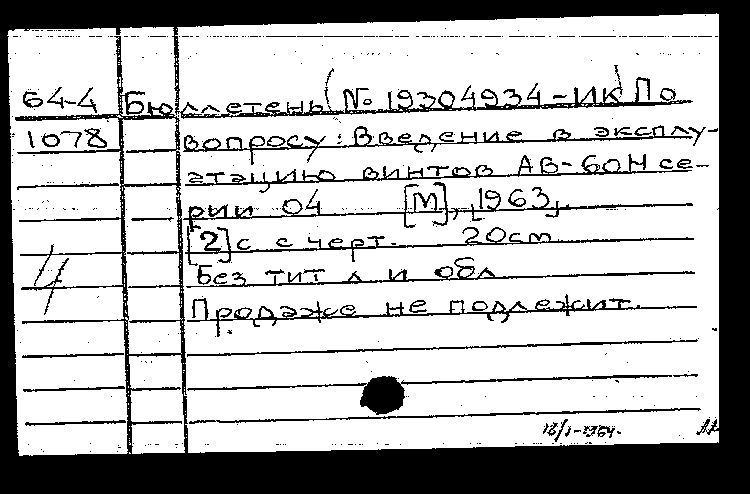 64-4 Бюллетень (№ 19304934-ИК) По
1078 вопросу: Введение в эксплу-
атацию винтов АВ-60Н се-
рии 04 [М], [1963].
[2] с с черт. 20 см
Без тит л и обл
Продаже не подлежит.
4
18/I-1964.